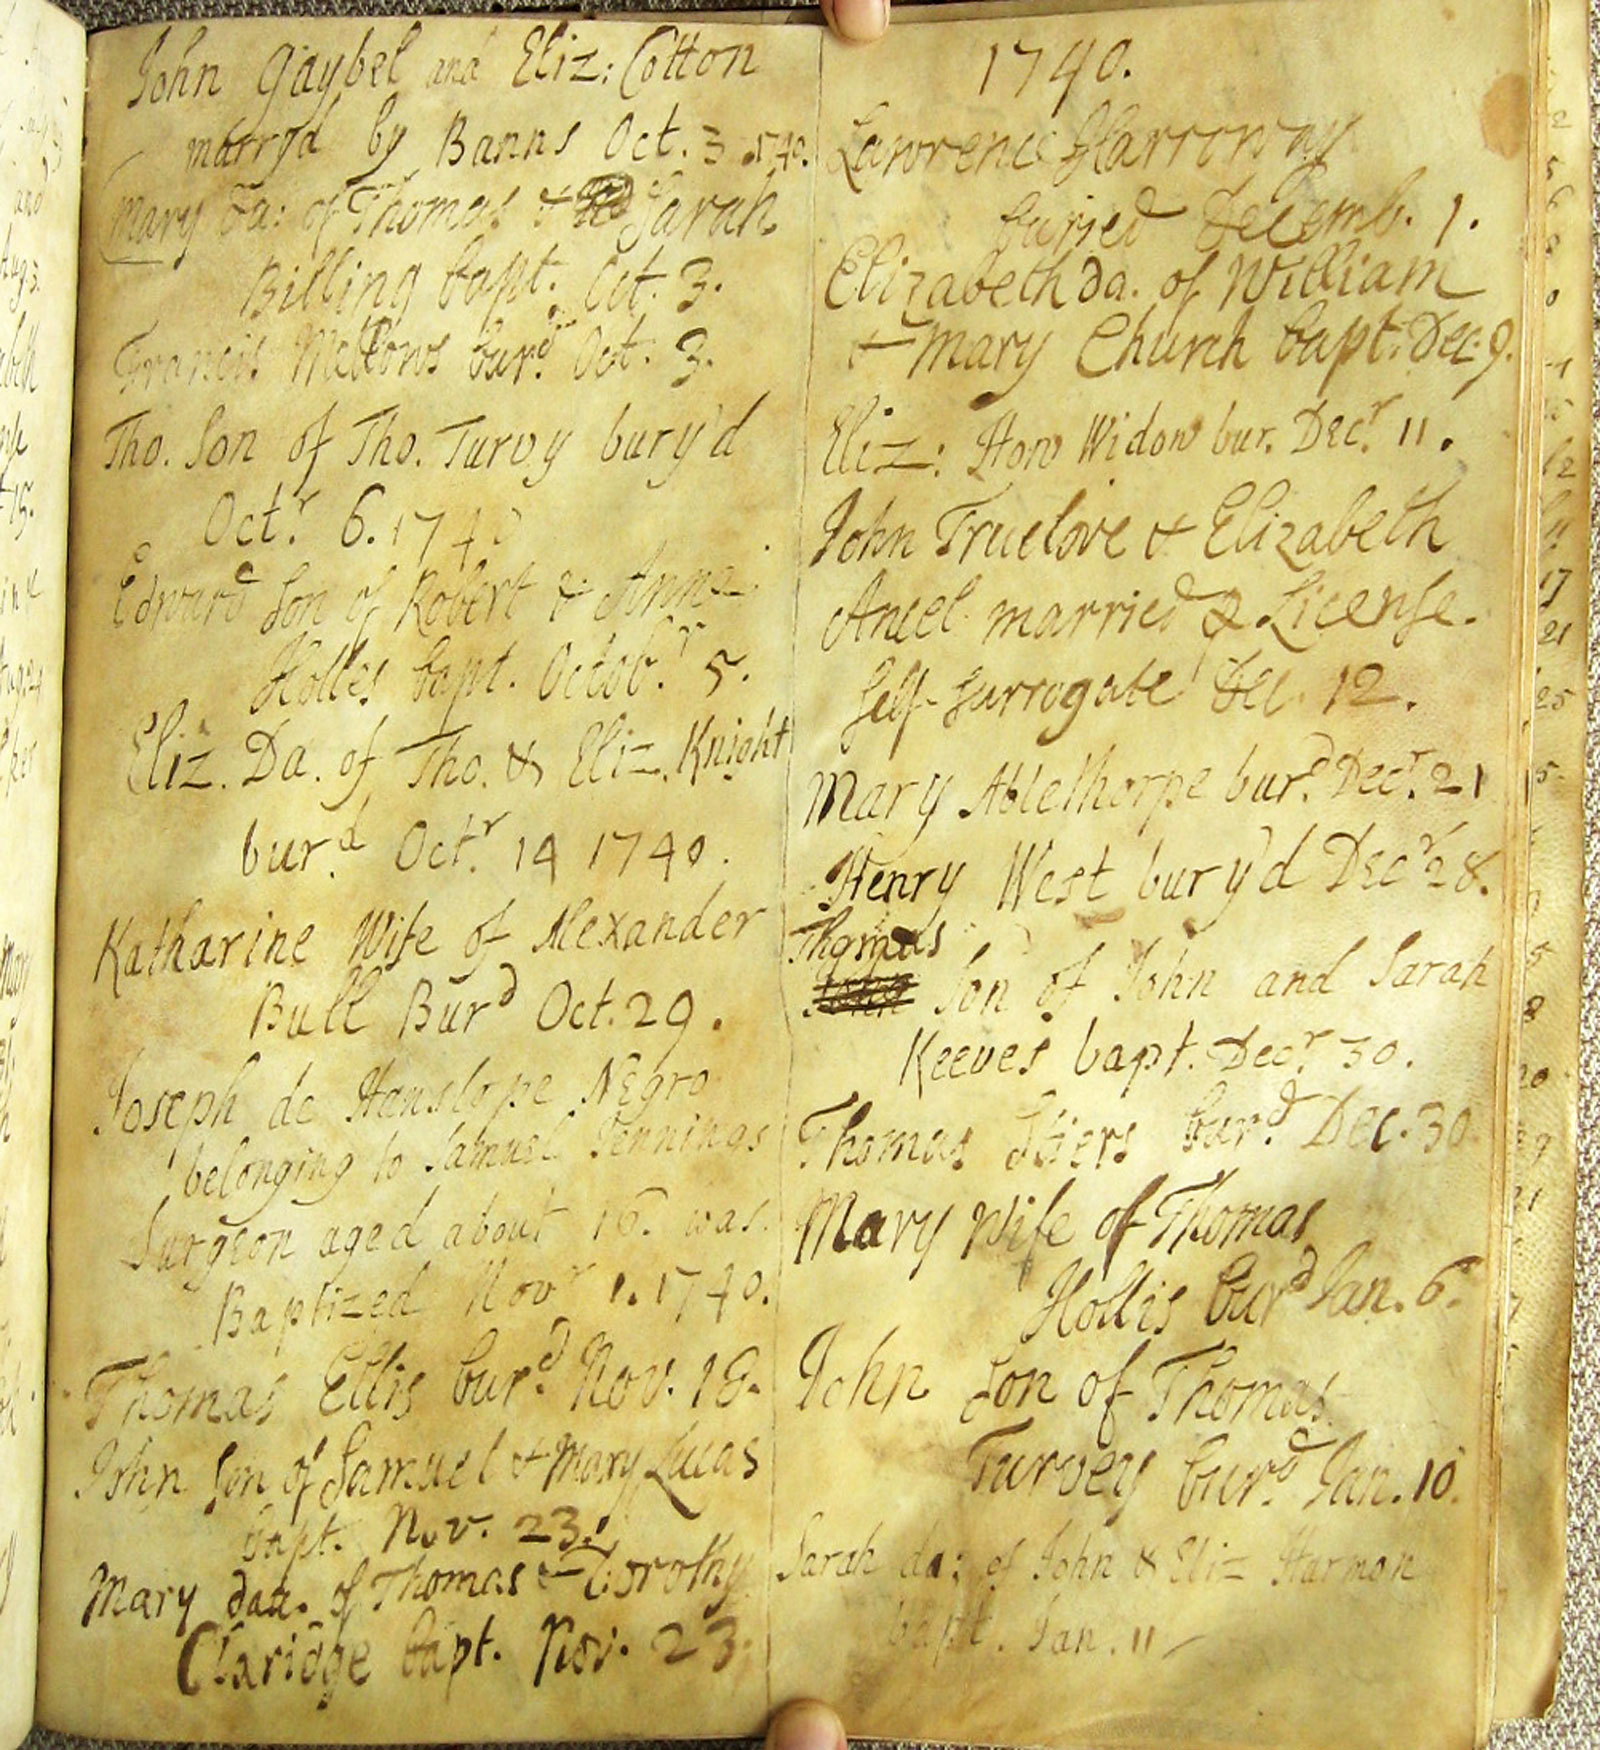 John Gaybel and Eliz: Cotton
marry'd by Banns Oct. 3
Mary Da: of Thomas & Sarah
Billing bapt. Oct. 3.
Francis Mellows bur.d Oct. 3.
Tho. Son of Tho. Turvy bury'd
Oct.r 6. 1740
Edward Son of Robert & Anne
Holles bapt. Octob.r 5.
Eliz. Da. of Tho. & Eliz. Knight
bur.d Oct.r 14 1740.
Katharine Wife of Alexander
Bull Bur.d Oct. 29.
Joseph de Hanslope Negro
belonging to Samuel Jennings
Surgeon aged about 16. was
Baptized Nov.r 1. 1740.
Thomas Ellis bur.d Nov. 18.
John Son of Samuel & Mary Lucas
bapt. Nov. 23.
Mary dau. of Thomas & Dorothy
Claridge bapt. Nov. 23.
1740.
Lawrence Harroway
buried Decemb. 1.
Elizabeth da. of William
& Mary Church bapt. Dec. 9.
Eliz: How Widow bur. Dec.r 11.
John Truelove & Elizabeth
Ancel married p License.
Self-Surrogate Dec. 12.
Mary Ablethorpe bur.d Dec.r 21
Henry West bury'd Dec.r 28.
Thomas
Son of John and Sarah
Keeves bapt. Dec.r 30.
Thomas bur.d Dec. 30
Mary Wife of Thomas
Hollis bur.d Jan. 6.
John Son of Thomas
Turvey bur.d Jan. 10.
Sarah da: of John & Eliz Harmon
bapt. Jan. 11